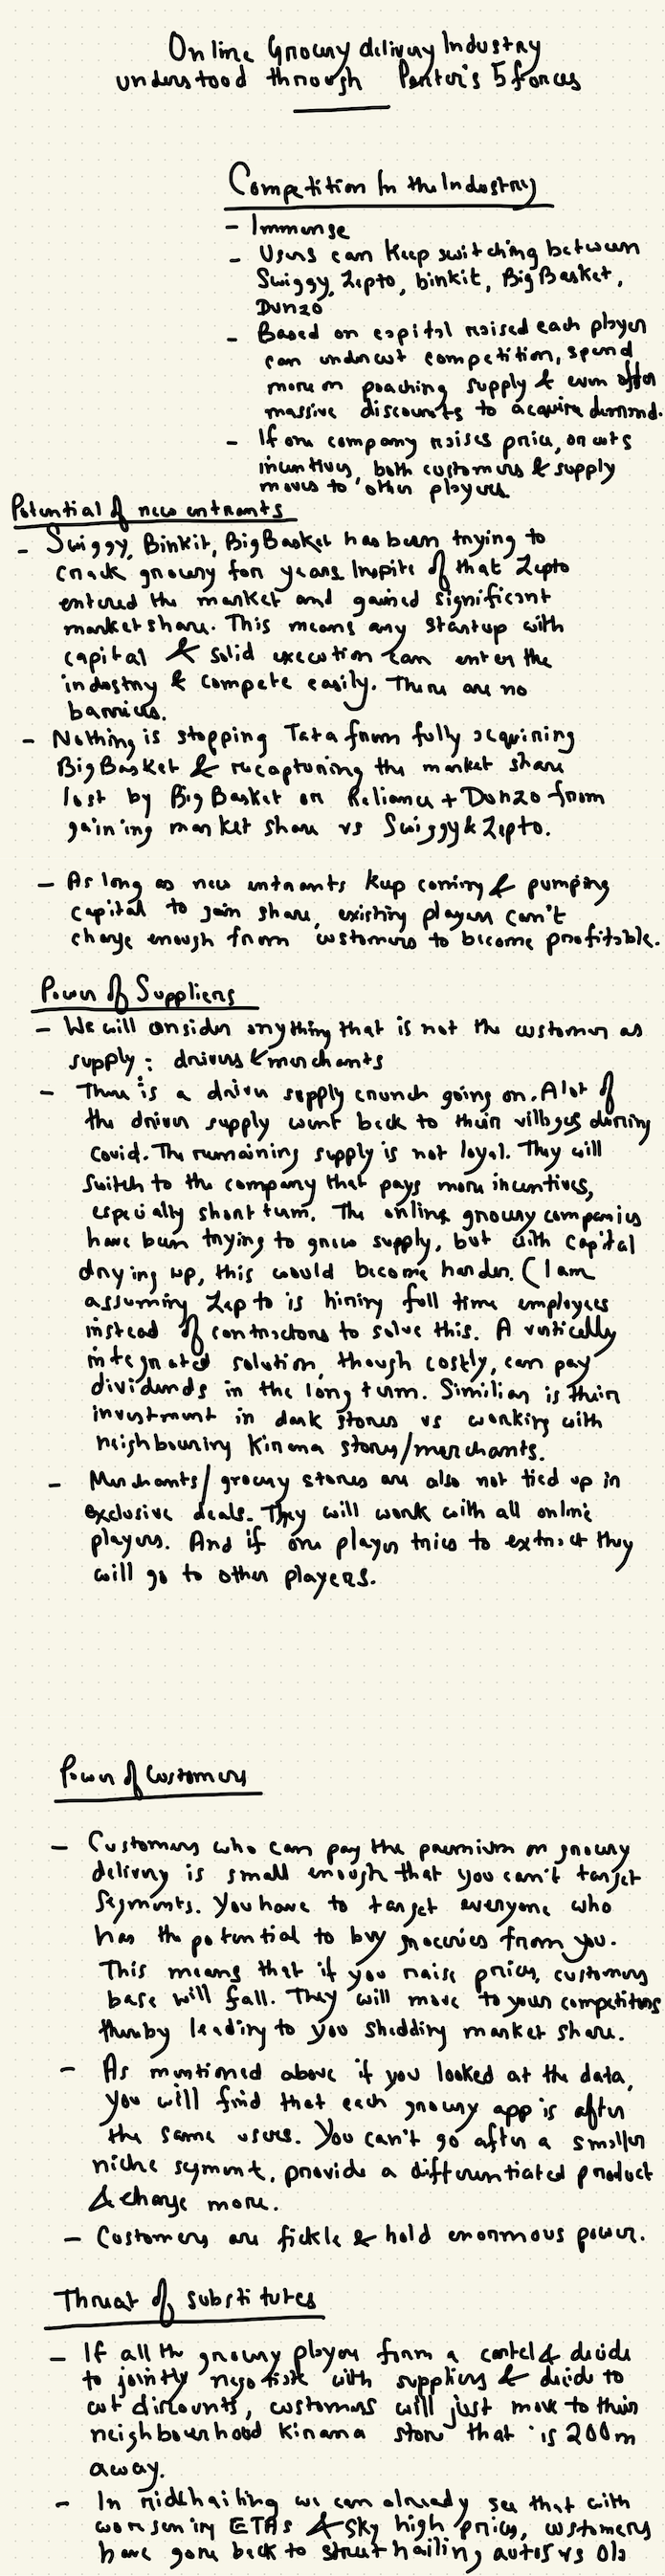 Online Grocery delivery Industry
understood through Porter's 5 forces
Competition In the Industry
- Immense
- Users can keep switching between
Swiggy, Zepto, binkit, BigBasket,
Dunzo
- Based on capital raised each player
can undercut competition, spend
more on poaching supply & even offer
massive discounts to acquire demand.
- If one company raises price, or cuts
incentives, both customers & supply
moves to other players.
Potential of new entrants
- Swiggy, Binkit, BigBasket has been trying to
crack grocery for years. Inspite of that Zepto
entered the market and gained significant
marketshare. This means any startup with
capital & solid execution can enter the
industry & compete easily. There are no
barriers.
- Nothing is stopping Tata from fully acquiring
BigBasket & recapturing the market share
lost by BigBasket or Reliance + Dunzo from
gaining market share vs Swiggy & Zepto.
- As long as new entrants keep coming & pumping
capital to gain share, existing players can't
charge enough from customers to become profitable.
Power of Suppliers
- We will consider anything that is not the customer as
supply: drivers & merchants
- There is a driver supply crunch going on. A lot of
the driver supply went back to their villages during
covid. The remaining supply is not loyal. They will
switch to the company that pays more incentives,
especially short term. The online grocery companies
have been trying to grow supply, but with capital
drying up, this would become harder. (I am
assuming Zepto is hiring full time employees
instead of contractors to solve this. A vertically
integrated solution, though costly, can pay
dividends in the long term. Similiar is their
investment in dark stores vs working with
neighbouring Kirana stores/merchants.
- Merchants/grocery stores are also not tied up in
exclusive deals. They will work with all online
players. And if one player tries to extract they
will go to other players.
Power of Customers
- Customers who can pay the premium on grocery
delivery is small enough that you can't target
segments. You have to target everyone who
has the potential to buy groceries from you.
This means that if you raise prices, customers
base will fall. They will move to your competitors
thereby leading to you shedding market share.
- As mentioned above if you looked at the data,
you will find that each grocery app is after
the same users. You can't go after a smaller
niche segment, provide a differentiated product
& charge more.
- Customers are fickle & hold enormous power.
Threat of substitutes
- If all the grocery players form a cartel & decide
to jointly negotiate with suppliers & decide to
cut discounts, customers will just move to their
neighbourhood Kirana store that is 200m
away.
- In ridehailing we can already see that with
worsening ETAs & sky high prices, customers
have gone back to street hailing autos vs Ola